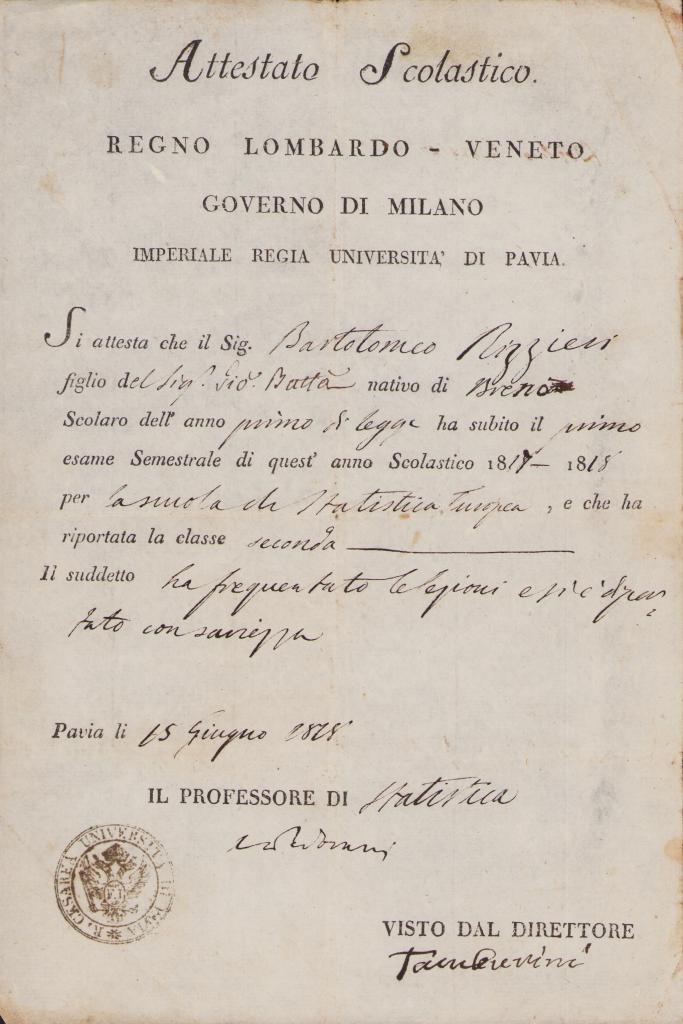 Attestato Scolastico.
REGNO LOMBARDO - VENETO
GOVERNO DI MILANO
IMPERIALE REGIA UNIVERSITA' DI PAVIA.
Si attesta che il Sig. Bartolomeo Rizzieri
figlio del Sigr. Gio. Batta nativo di Breno
Scolaro dell' anno primo di legge ha subito il primo
esame Semestrale di quest' anno Scolastico 1817 - 1818
per la scuola di Statistica Europea , e che ha
riportata la classe seconda
Il suddetto ha frequentato le lezioni e si è dipor-
tato con saviezza
Pavia li 15 Giugno 1818
IL PROFESSORE DI Statistica
R. CESAREA UNIVERSITÀ DI PAVIA
F. I.
VISTO DAL DIRETTORE
Tamburini